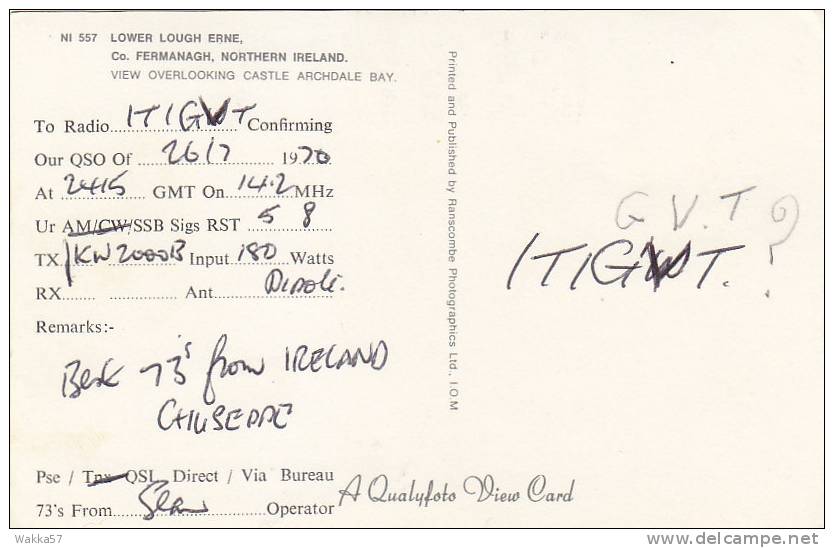 NI 557 LOWER LOUGH ERNE,
Co. FERMANAGH, NORTHERN IRELAND.
VIEW OVERLOOKING CASTLE ARCHDALE BAY.
To Radio IT1GVT Confirming
Our QSO Of 26/7 1970
At 2415 GMT On 14.2 MHz
Ur AM/CW/SSB Sigs RST 5 8
TX KW2000B Input 180 Watts
RX Ant Dipole.
Remarks:-
Best 73's from IRELAND
GHIUSEPPE
Pse / Tnx QSL Direct / Via Bureau
73's From Sean Operator
A Qualyfoto View Card
Printed and Published by Ranscombe Photographics Ltd., I.O.M
G V.T ?
IT1GVT.
Wakka57
delcampe.net